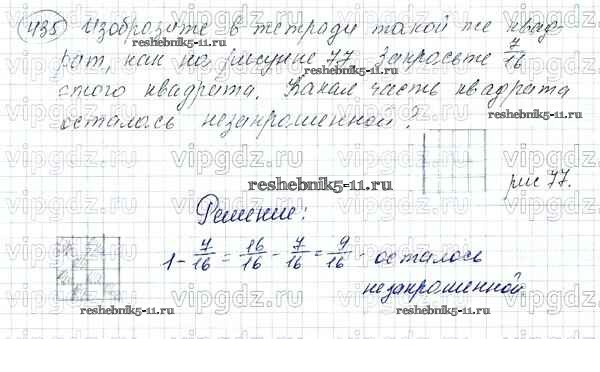 435 Изобразите в тетради такой же квад-
рат, как на рисунке 77. Закрасьте 7/16
этого квадрата. Какая часть квадрата
осталась незакрашенной?
рис 77.
Решение:
1 - 7/16 = 16/16 - 7/16 = 9/16 - осталось
незакрашенной
vipgdz.ru
reshebnik5-11.ru